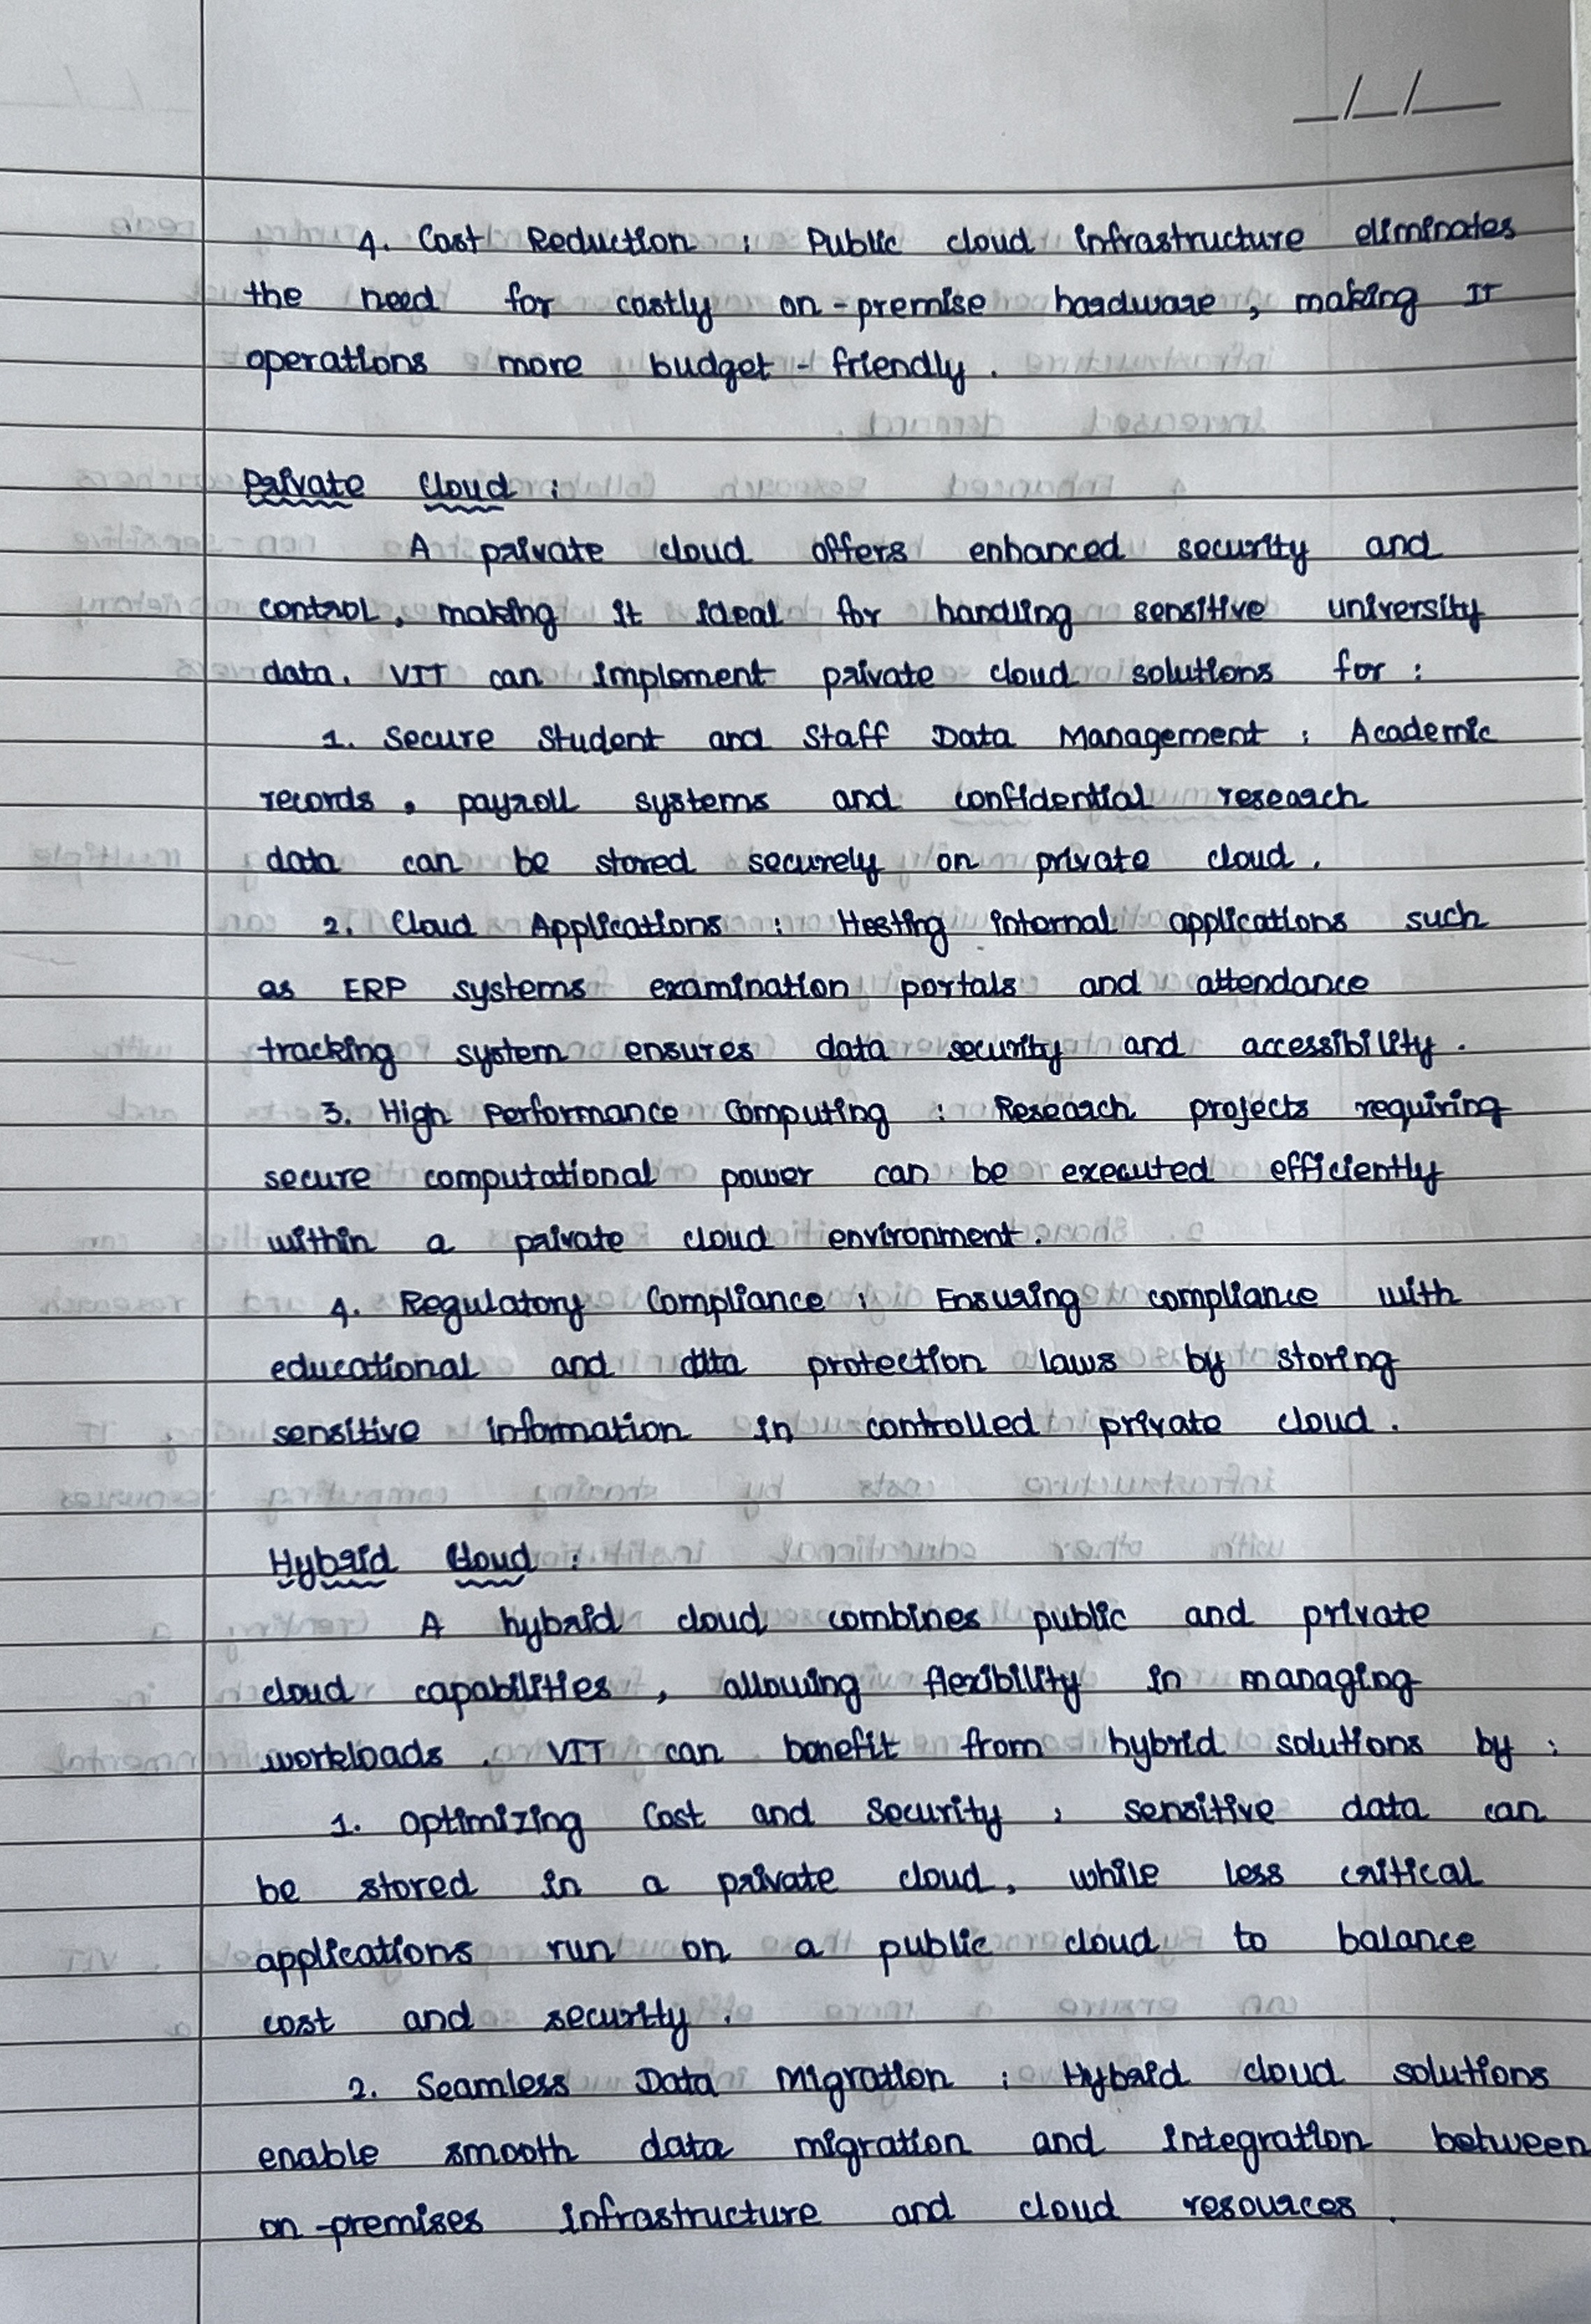 _/_/__
4. Cost Reduction : Public cloud infrastructure eliminates
the need for costly on-premise hardware, making IT
operations more budget-friendly.
Private Cloud :
A private cloud offers enhanced security and
control, making it ideal for handling sensitive university
data. VIT can implement private cloud solutions for :
1. Secure Student and Staff Data Management : Academic
records, payroll systems and confidential research
data can be stored securely on private cloud.
2. Cloud Applications : Hosting internal applications such
as ERP systems examination portals and attendance
tracking system ensures data security and accessibility.
3. High Performance Computing : Research projects requiring
secure computational power can be executed efficiently
within a private cloud environment.
4. Regulatory Compliance : Ensuring compliance with
educational and data protection laws by storing
sensitive information in controlled private cloud.
Hybrid Cloud :
A hybrid cloud combines public and private
cloud capabilities, allowing flexibility in managing
workloads. VIT can benefit from hybrid solutions by :
1. Optimizing Cost and Security : sensitive data can
be stored in a private cloud, while less critical
applications run on a public cloud to balance
cost and security.
2. Seamless Data Migration : Hybrid cloud solutions
enable smooth data migration and integration between
on-premises infrastructure and cloud resources.